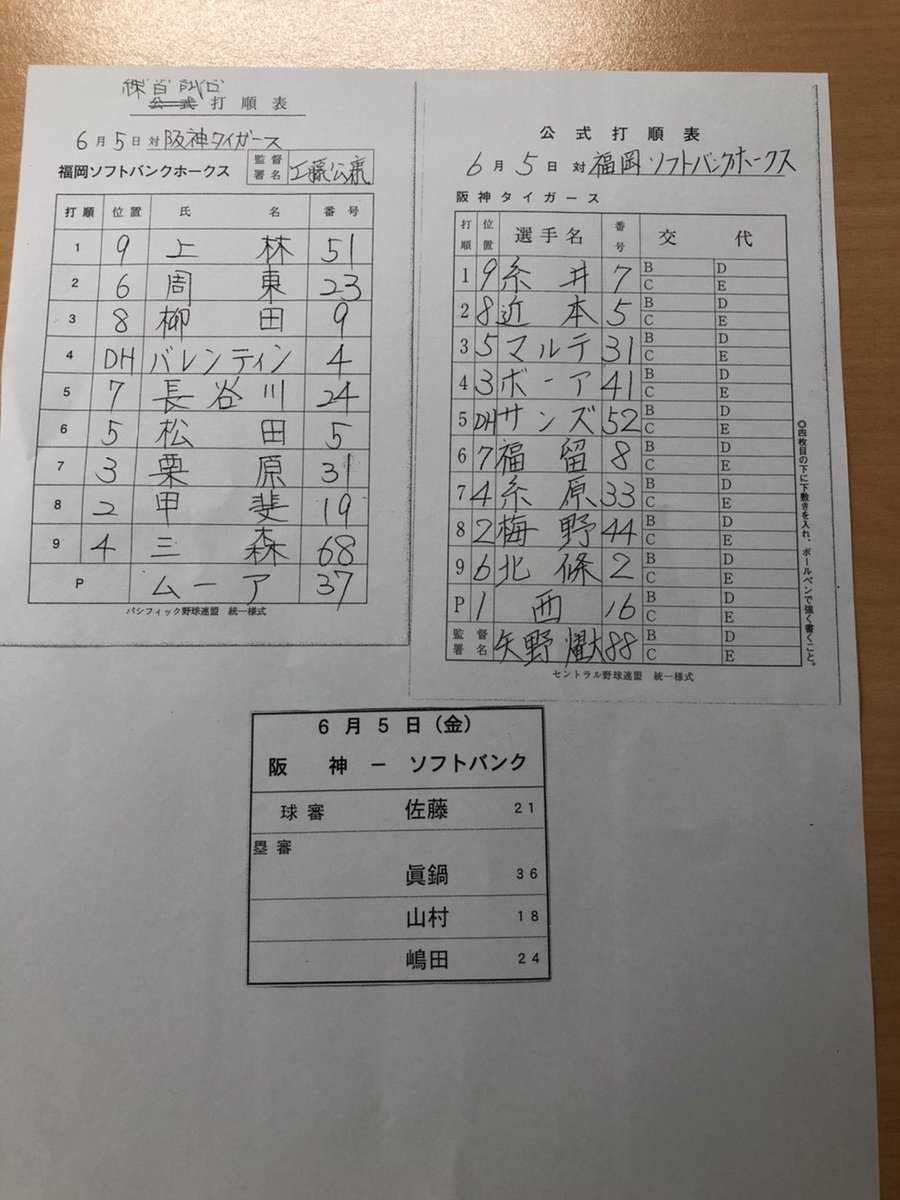 練習試合
公式 打順表
6月5日対阪神タイガース
福岡ソフトバンクホークス 監督署名 工藤公康
打順 位置 氏名 番号
1 9 上林 51
2 6 周東 23
3 8 柳田 9
4 DH バレンティン 4
5 7 長谷川 24
6 5 松田 5
7 3 栗原 31
8 2 甲斐 19
9 4 三森 68
P ムーア 37
パシフィック野球連盟 統一様式
公式打順表
6月5日対福岡ソフトバンクホークス
阪神タイガース
打順 位置 選手名 番号 交代
1 9 糸井 7 B C D E
2 8 近本 5 B C D E
3 5 マルテ 31 B C D E
4 3 ボーア 41 B C D E
5 DH サンズ 52 B C D E
6 7 福留 8 B C D E
7 4 糸原 33 B C D E
8 2 梅野 44 B C D E
9 6 北條 2 B C D E
P 1 西 16 B C D E
監督署名 矢野燿大 88 B C D E
セントラル野球連盟 統一様式
◎四枚目の下に下敷きを入れ、ボールペンで強く書くこと。
6月5日(金)
阪神－ソフトバンク
球審 佐藤 21
塁審
眞鍋 36
山村 18
嶋田 24